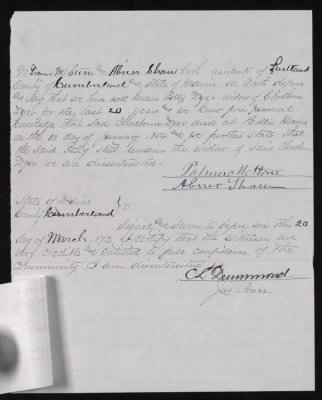 We Palmer M Gore and Abner Shaw both residents of Portland
County of Cumberland and State of Maine on oath depose
and say that we have well known Polly Dyer widow of Chadbourn
Dyer for the last 20 years and we know from personal
knowledge that said Chadbourn Dyer died at Maine
on the 10 day of and we further state that
the said Polly still remains the widow of said
Dyer we are disinterested.
Abner Shaw
State of Maine
County Cumberland } SS
Signed and sworn to before me this 20
day of March 187 I certify that the are
very credible and entitled to full confidence of the
Community I am disinterested
C L Drummond
Jus Peace